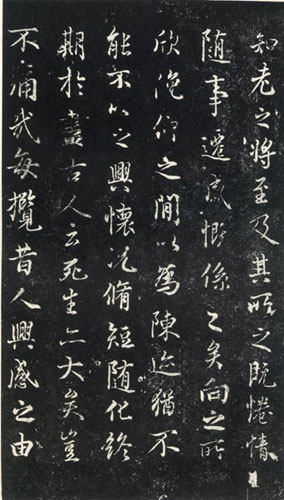 知老之將至及其所之既惓情
随事遷感慨係之矣向之所
欣俛仰之間以為陳迹猶不
能不以之興懷况脩短随化終
期於盡古人云死生亦大矣豈
不痛哉每攬昔人興感之由